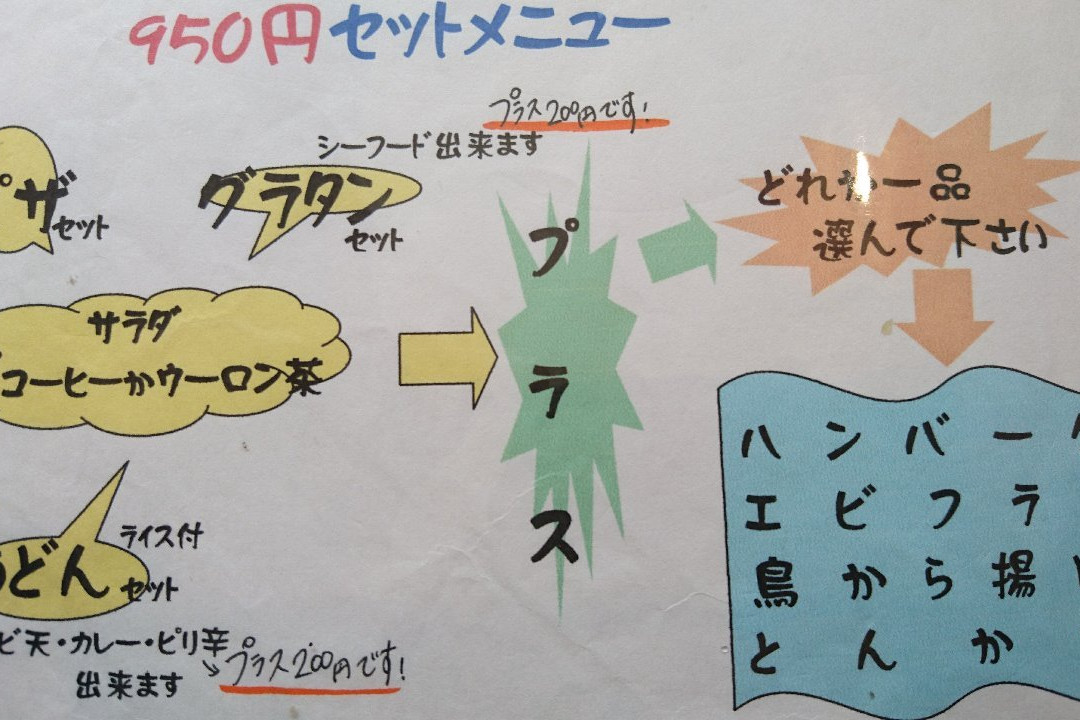 950円セットメニュー
プラス200円です!
シーフード出来ます
ザ
セット
グラタン
セット
プラス
どれか一品
選んで下さい
サラダ
コーヒーかウーロン茶
ハンバー
エビフラ
鳥から揚
とんか
ライス付
どん
セット
天・カレー・ピリ辛
出来ます
プラス200円です!